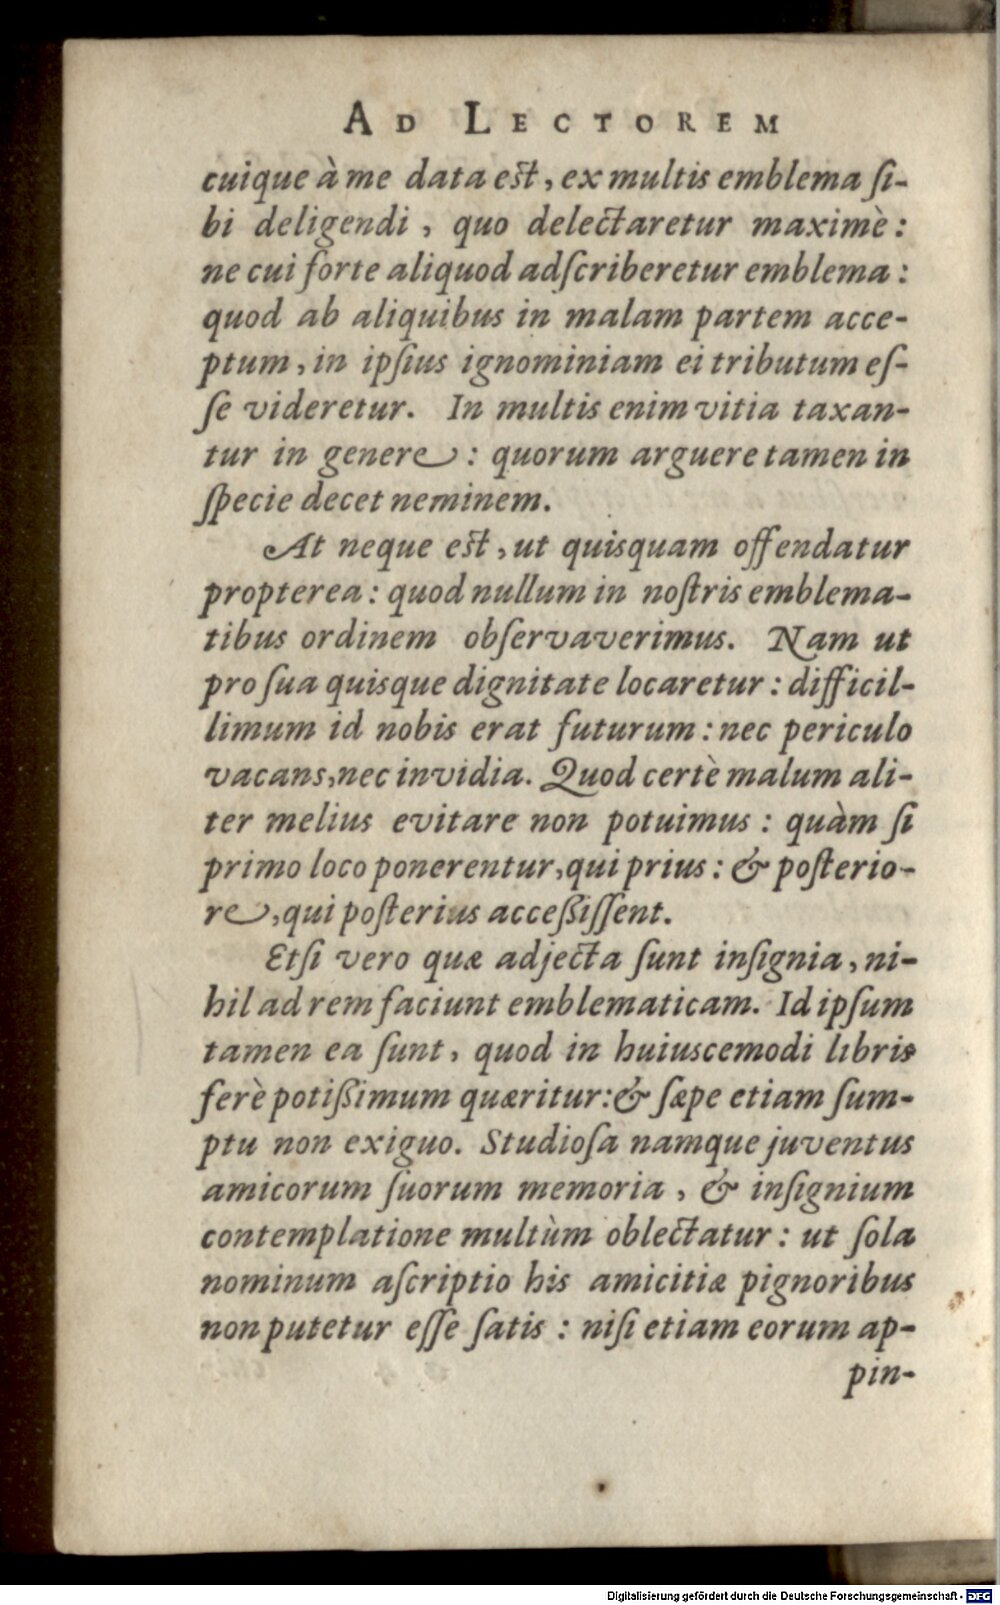 AD LECTOREM
cuique à me data est, ex multis emblema ſi-
bi deligendi, quo delectaretur maximè:
ne cui forte aliquod adſcriberetur emblema:
quod ab aliquibus in malam partem acce-
ptum, in ipſius ignominiam ei tributum eſ-
ſe videretur. In multis enim vitia taxan-
tur in genere: quorum arguere tamen in
ſpecie decet neminem.
At neque est, ut quisquam offendatur
propterea: quod nullum in noſtris emblema-
tibus ordinem obſervaverimus. Nam ut
pro ſua quisque dignitate locaretur: difficil-
limum id nobis erat futurum: nec periculo
vacans, nec invidia. Quod certè malum ali-
ter melius evitare non potuimus: quàm ſi
primo loco ponerentur, qui prius: & poſterio-
re, qui poſterius acceßiſſent.
Etſi vero quæ adjecta ſunt inſignia, ni-
hil ad rem faciunt emblematicam. Id ipſum
tamen ea ſunt, quod in huiuscemodi libris
ferè potißimum quæritur: & ſæpe etiam ſum-
ptu non exiguo. Studioſa namque juventus
amicorum ſuorum memoria, & inſignium
contemplatione multùm oblectatur: ut ſola
nominum aſcriptio his amicitiæ pignoribus
non putetur eſſe ſatis: niſi etiam eorum ap-
pin-
Digitalisierung gefördert durch die Deutsche Forschungsgemeinschaft - DFG